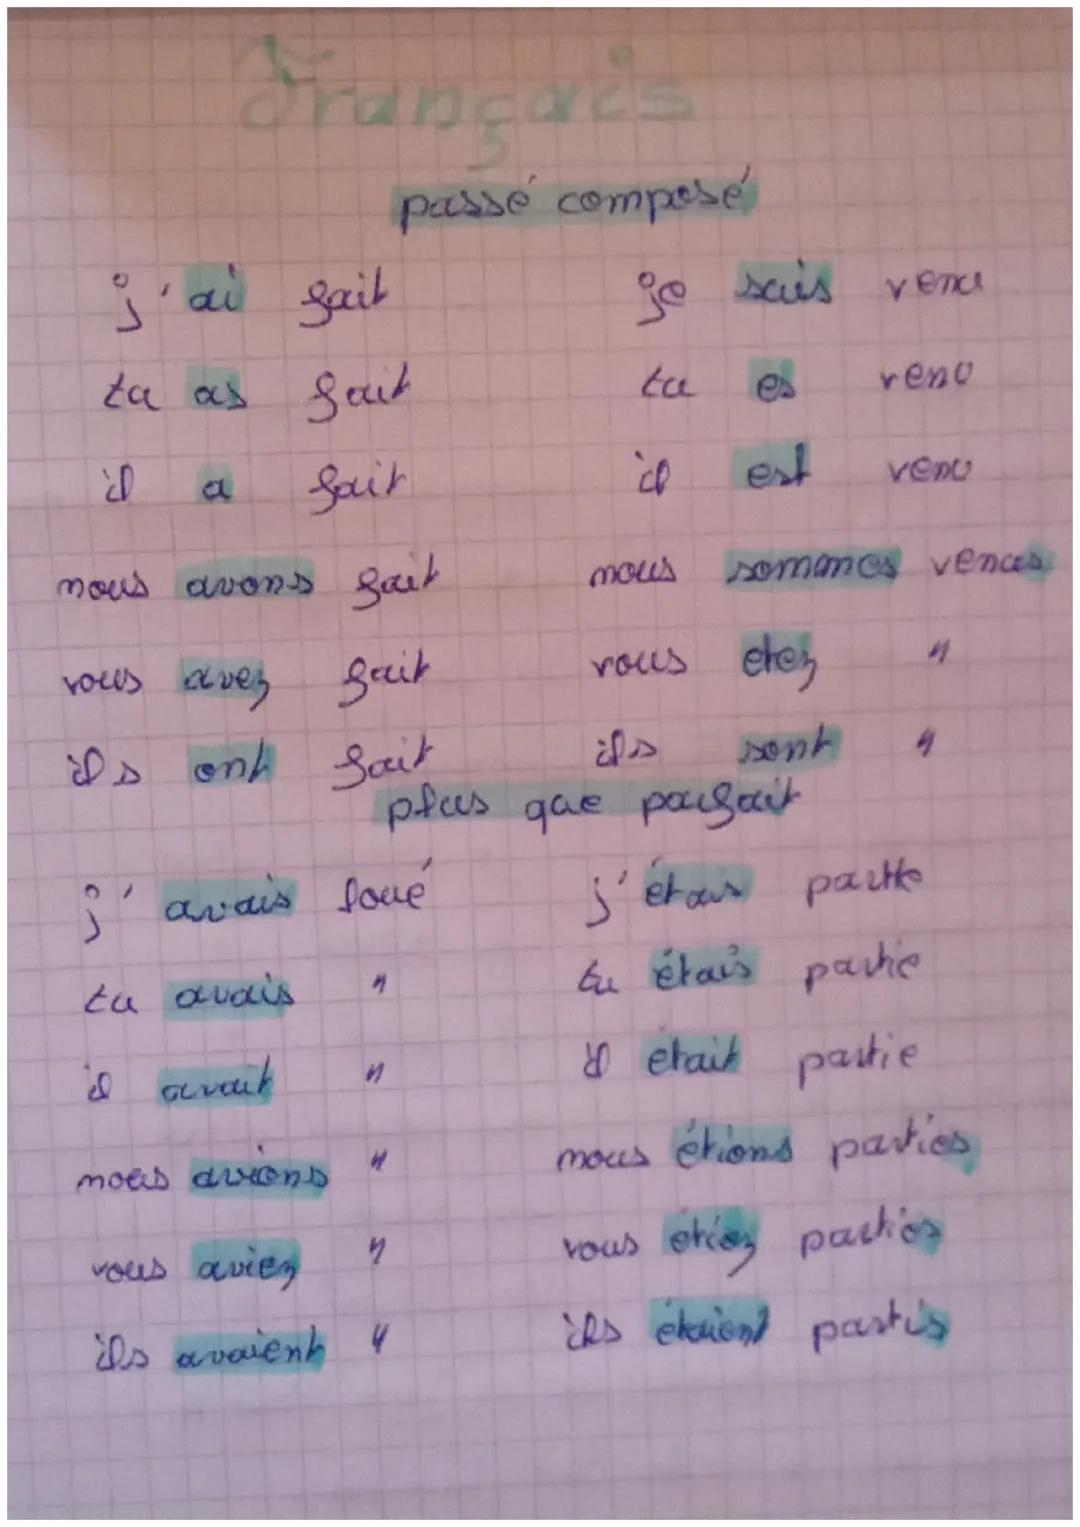 Français
passé composé
j'ai fait je suis venu
tu as fait tu es venu
il a fait il est venu
nous avons fait nous sommes venues
vous avez fait vous etez "
ils ont fait ils sont "
plus que parfait
j'avais loué j'étais partie
tu avais " tu étais partie
il avait " il était partie
nous avions " nous étions parties
vous aviez " vous étiez parties
ils avaient " ils étaient partis